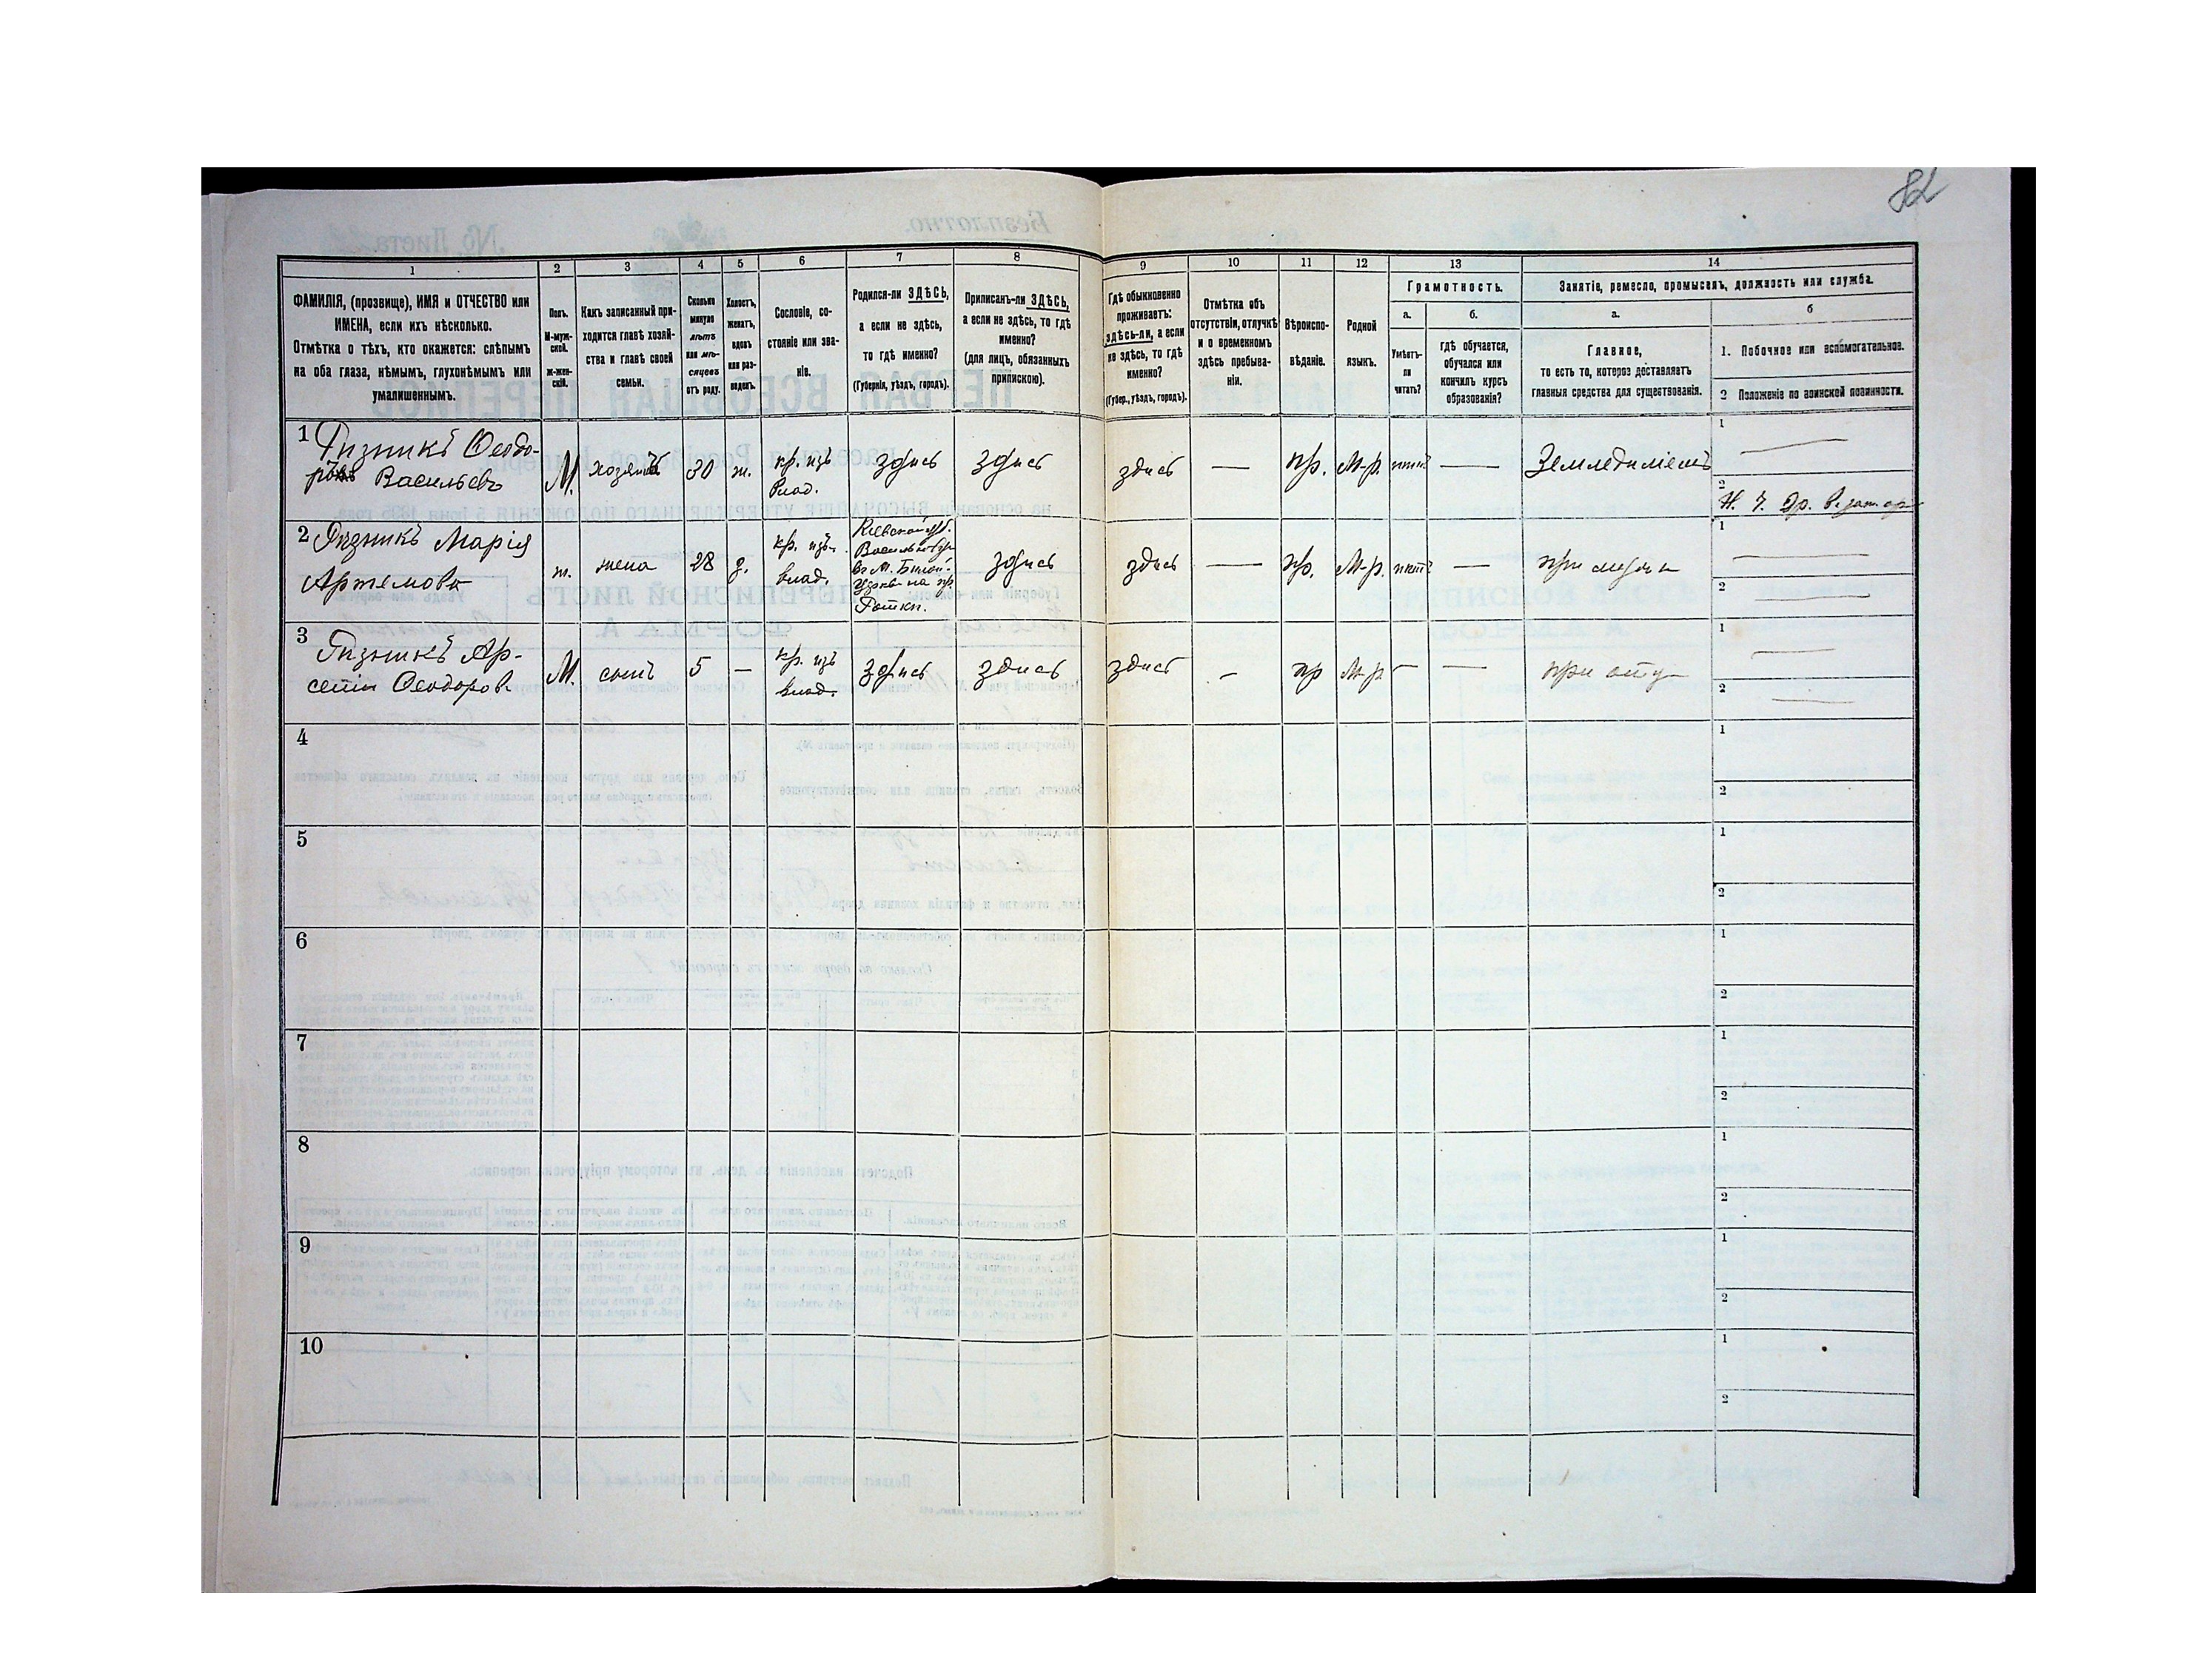 82
1
2
3
4
5
6
7
8
9
10
11
12
13
14
ФАМИЛІЯ, (прозвище), ИМЯ и ОТЧЕСТВО или
ИМЕНА, если ихъ нѣсколько.
Отмѣтка о тѣхъ, кто окажется: слѣпымъ
на оба глаза, нѣмымъ, глухонѣмымъ или
умалишеннымъ.
Полъ.
М-муж-
ской.
ж-жен-
скій.
Какъ записанный при-
ходится главѣ хозяй-
ства и главѣ своей
семьи.
Сколько
минуло
лѣтъ
или мѣ-
сяцевъ
отъ роду.
Холостъ,
женатъ,
вдовъ
или раз-
веденъ.
Сословіе, со-
стояніе или зва-
ніе.
Родился-ли ЗДѢСЬ,
а если не здѣсь,
то гдѣ именно?
(Губернія, уѣздъ, городъ).
Приписанъ-ли ЗДѢСЬ,
а если не здѣсь, то гдѣ
именно?
(для лицъ, обязанныхъ
припискою).
Гдѣ обыкновенно
проживаетъ:
здѣсь-ли, а если
не здѣсь, то гдѣ
именно?
(Губер., уѣздъ, городъ).
Отмѣтка объ
отсутствіи, отлучкѣ
и о временномъ
здѣсь пребыва-
ніи.
Вѣроиспо-
вѣданіе.
Родной
языкъ.
Грамотность.
а.
Умѣетъ-
ли
читать?
б.
гдѣ обучается,
обучался или
кончилъ курсъ
образованія?
Занятіе, ремесло, промыселъ, должность или служба.
а.
Главное,
то есть то, которое доставляетъ
главныя средства для существованія.
б
1. Побочное или вспомогательное.
2 Положеніе по воинской повинности.
1 Гизникъ Ѳеодо-
ръ Васильевъ
М.
хозяинъ
30
ж.
кр. изъ
влад.
здѣсь
здѣсь
здѣсь
—
пр.
М-р.
нѣтъ
—
Земледѣлецъ
1 —
2
2 Гизникъ Марія
Артемова
ж.
жена
28
з.
кр. изъ
влад.
Кіевской губ.
Васильков.
въ М. Бѣлой-
Церкви на пр.
здѣсь
здѣсь
—
пр.
М-р.
нѣтъ
—
при мужѣ
1 —
2 —
3 Гизникъ Ар-
сетій Ѳеодоров.
М.
сынъ
5
—
кр. изъ
влад.
здѣсь
здѣсь
здѣсь
-
пр
М-р
—
—
при отцѣ
1 —
2 —
4
1
2
5
1
2
6
1
2
7
1
2
8
1
2
9
1
2
10
1
2